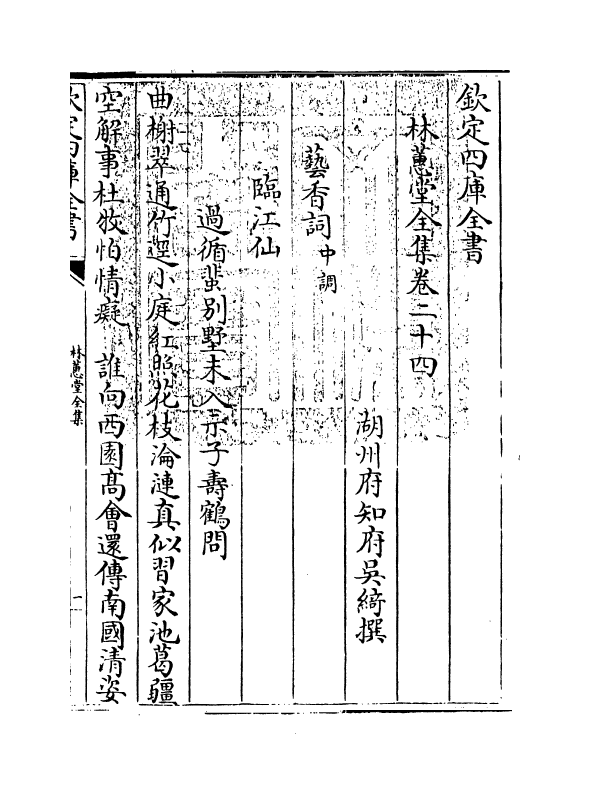 欽定四庫全書
林蕙堂全集卷二十四
湖州府知府吳綺撰
藝香詞中調
臨江仙
過循蜚別墅未入示子壽鶴問
曲榭翠通竹逕小庭紅照花枝淪漣真似習家池葛疆
空解事杜牧怕情癡　誰向西園髙會還傳南國清姿
欽定四庫全書
林蕙堂全集
一